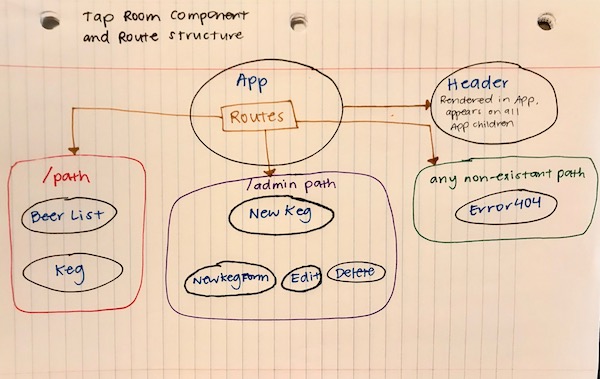 Tap Room Component
and Route structure
App
Routes
Header
Rendered in App,
appears on all
App children
/path
Beer List
Keg
/admin path
New Keg
NewKegForm
Edit
Delete
any non-existant path
Error404